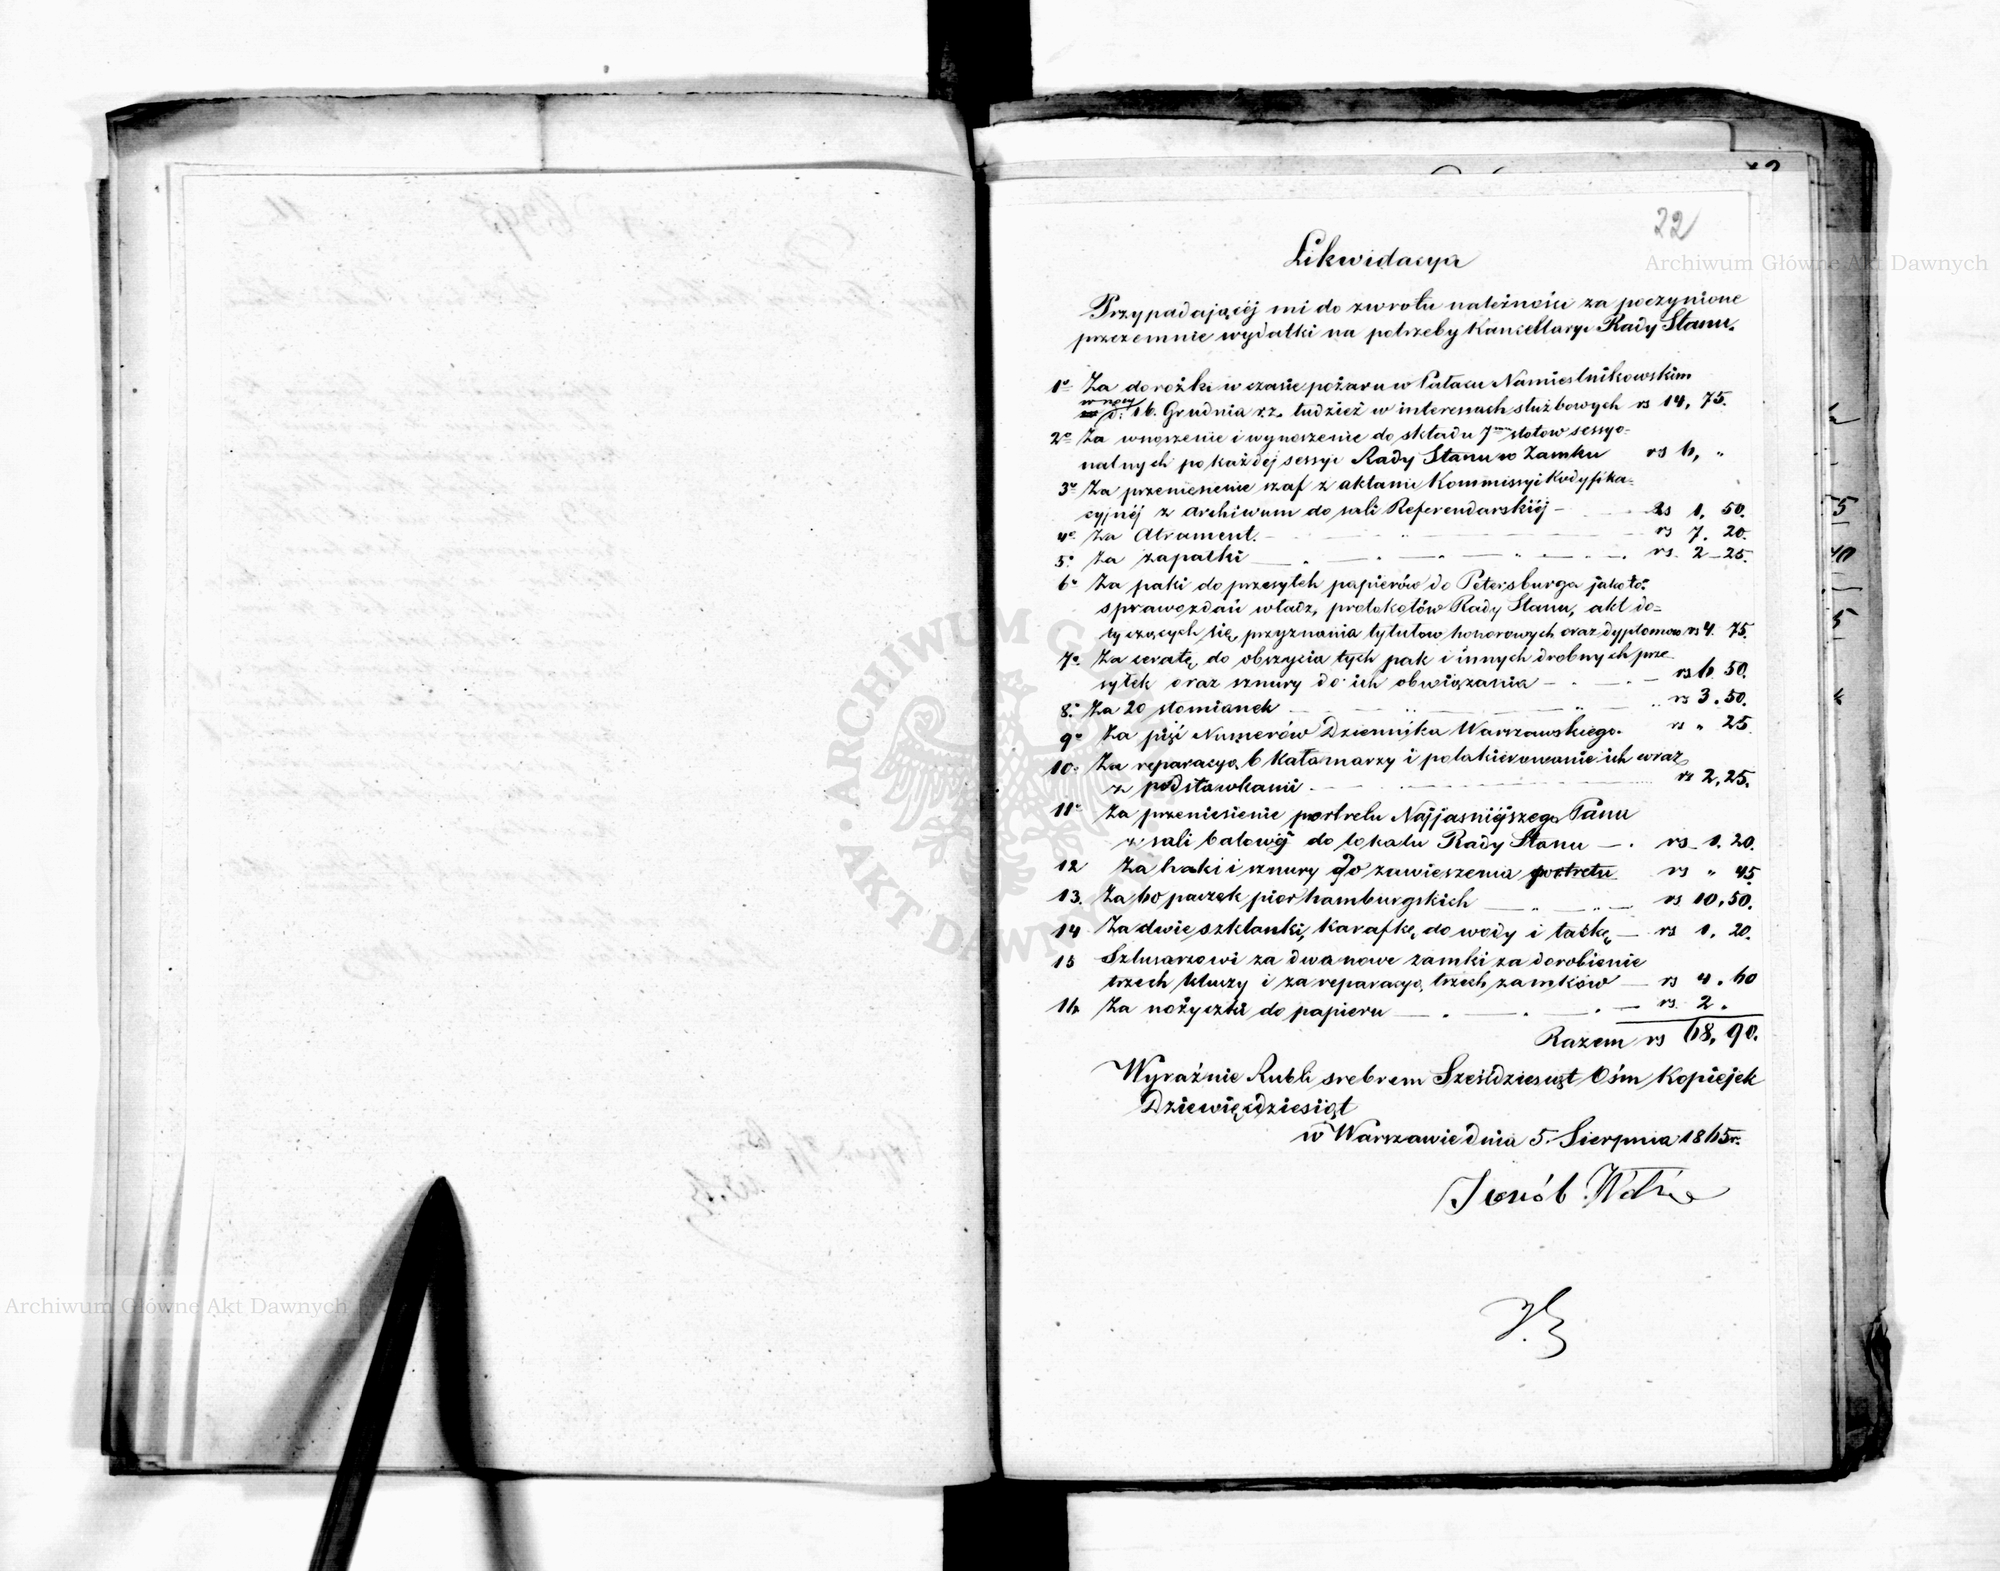 22
Likwidacya
Przypadającéj mi do zwrotu należności za poczynione
przezemnie wydatki na potrzeby Kancellaryi Rady Stanu.
1o Za dorożki w czasie pożaru w Pałacu Namiestnikowskim
w nocy
d. 16. Grudnia r.z. tudzież w interessach służbowych rs 14, 75.
2o Za wnoszenie i wynoszenie do składu 7miu stołow sessyo=
nalnych po każdéj sessyi Rady Stanu w Zamku rs 6, "
3o Za przeniesienie szaf z aktami Kommissyi Kodyfika=
cyjnéj z Archiwum do sali Referendarskiéj — rs 1, 50.
4o Za Atrament. rs 7. 20.
5o Za zapałki rs. 2 - 25.
6o Za paki do przesyłek papierów do Petersburga jako to:
sprawozdań władz, protokołów Rady Stanu, akt do=
tyczących się, przyznania tytułow honorowych oraz dyplomow rs 4. 75.
7o Za ceratę do obszycia tych pak i innych drobnych prze
syłek oraz sznury do ich obwiązania — rs 6. 50.
8o Za 20 słomianek rs 3. 50.
9o Za pięć Numerów Dziennika Warszawskiego. rs " 25
10o Za reparacyą 6 Kałamarzy i polakierowanie ich wraz
z podstawkami rs 2, 25.
11o Za przeniesienie portretu Najjaśniéjszego Pana
z sali balowéj do lokalu Rady Stanu — rs 1. 20.
12 Za haki i sznury do zawieszenia portretu rs " 45
13. Za 60 paczek pior hamburgskich rs 10, 50.
14 Za dwie szklanki, karafkę do wody i tackę — rs 1, 20.
15 Szlusarzowi za dwa nowe zamki za dorobienie
trzech kluczy i za reparacyą trzech zamków — rs 4. 60
16 Za nożyczki do papieru rs. 2 .
Razem rs 68, 90.
Wyraźnie Rubli srebrem Sześćdziesiąt Ośm Kopiejek
Dziewięćdziesiąt
w Warszawie dnia 5. Sierpnia 1865 r.
Archiwum Główne Akt Dawnych
Archiwum Główne Akt Dawnych
ARCHIWUM GŁÓWNE AKT DAWNYCH